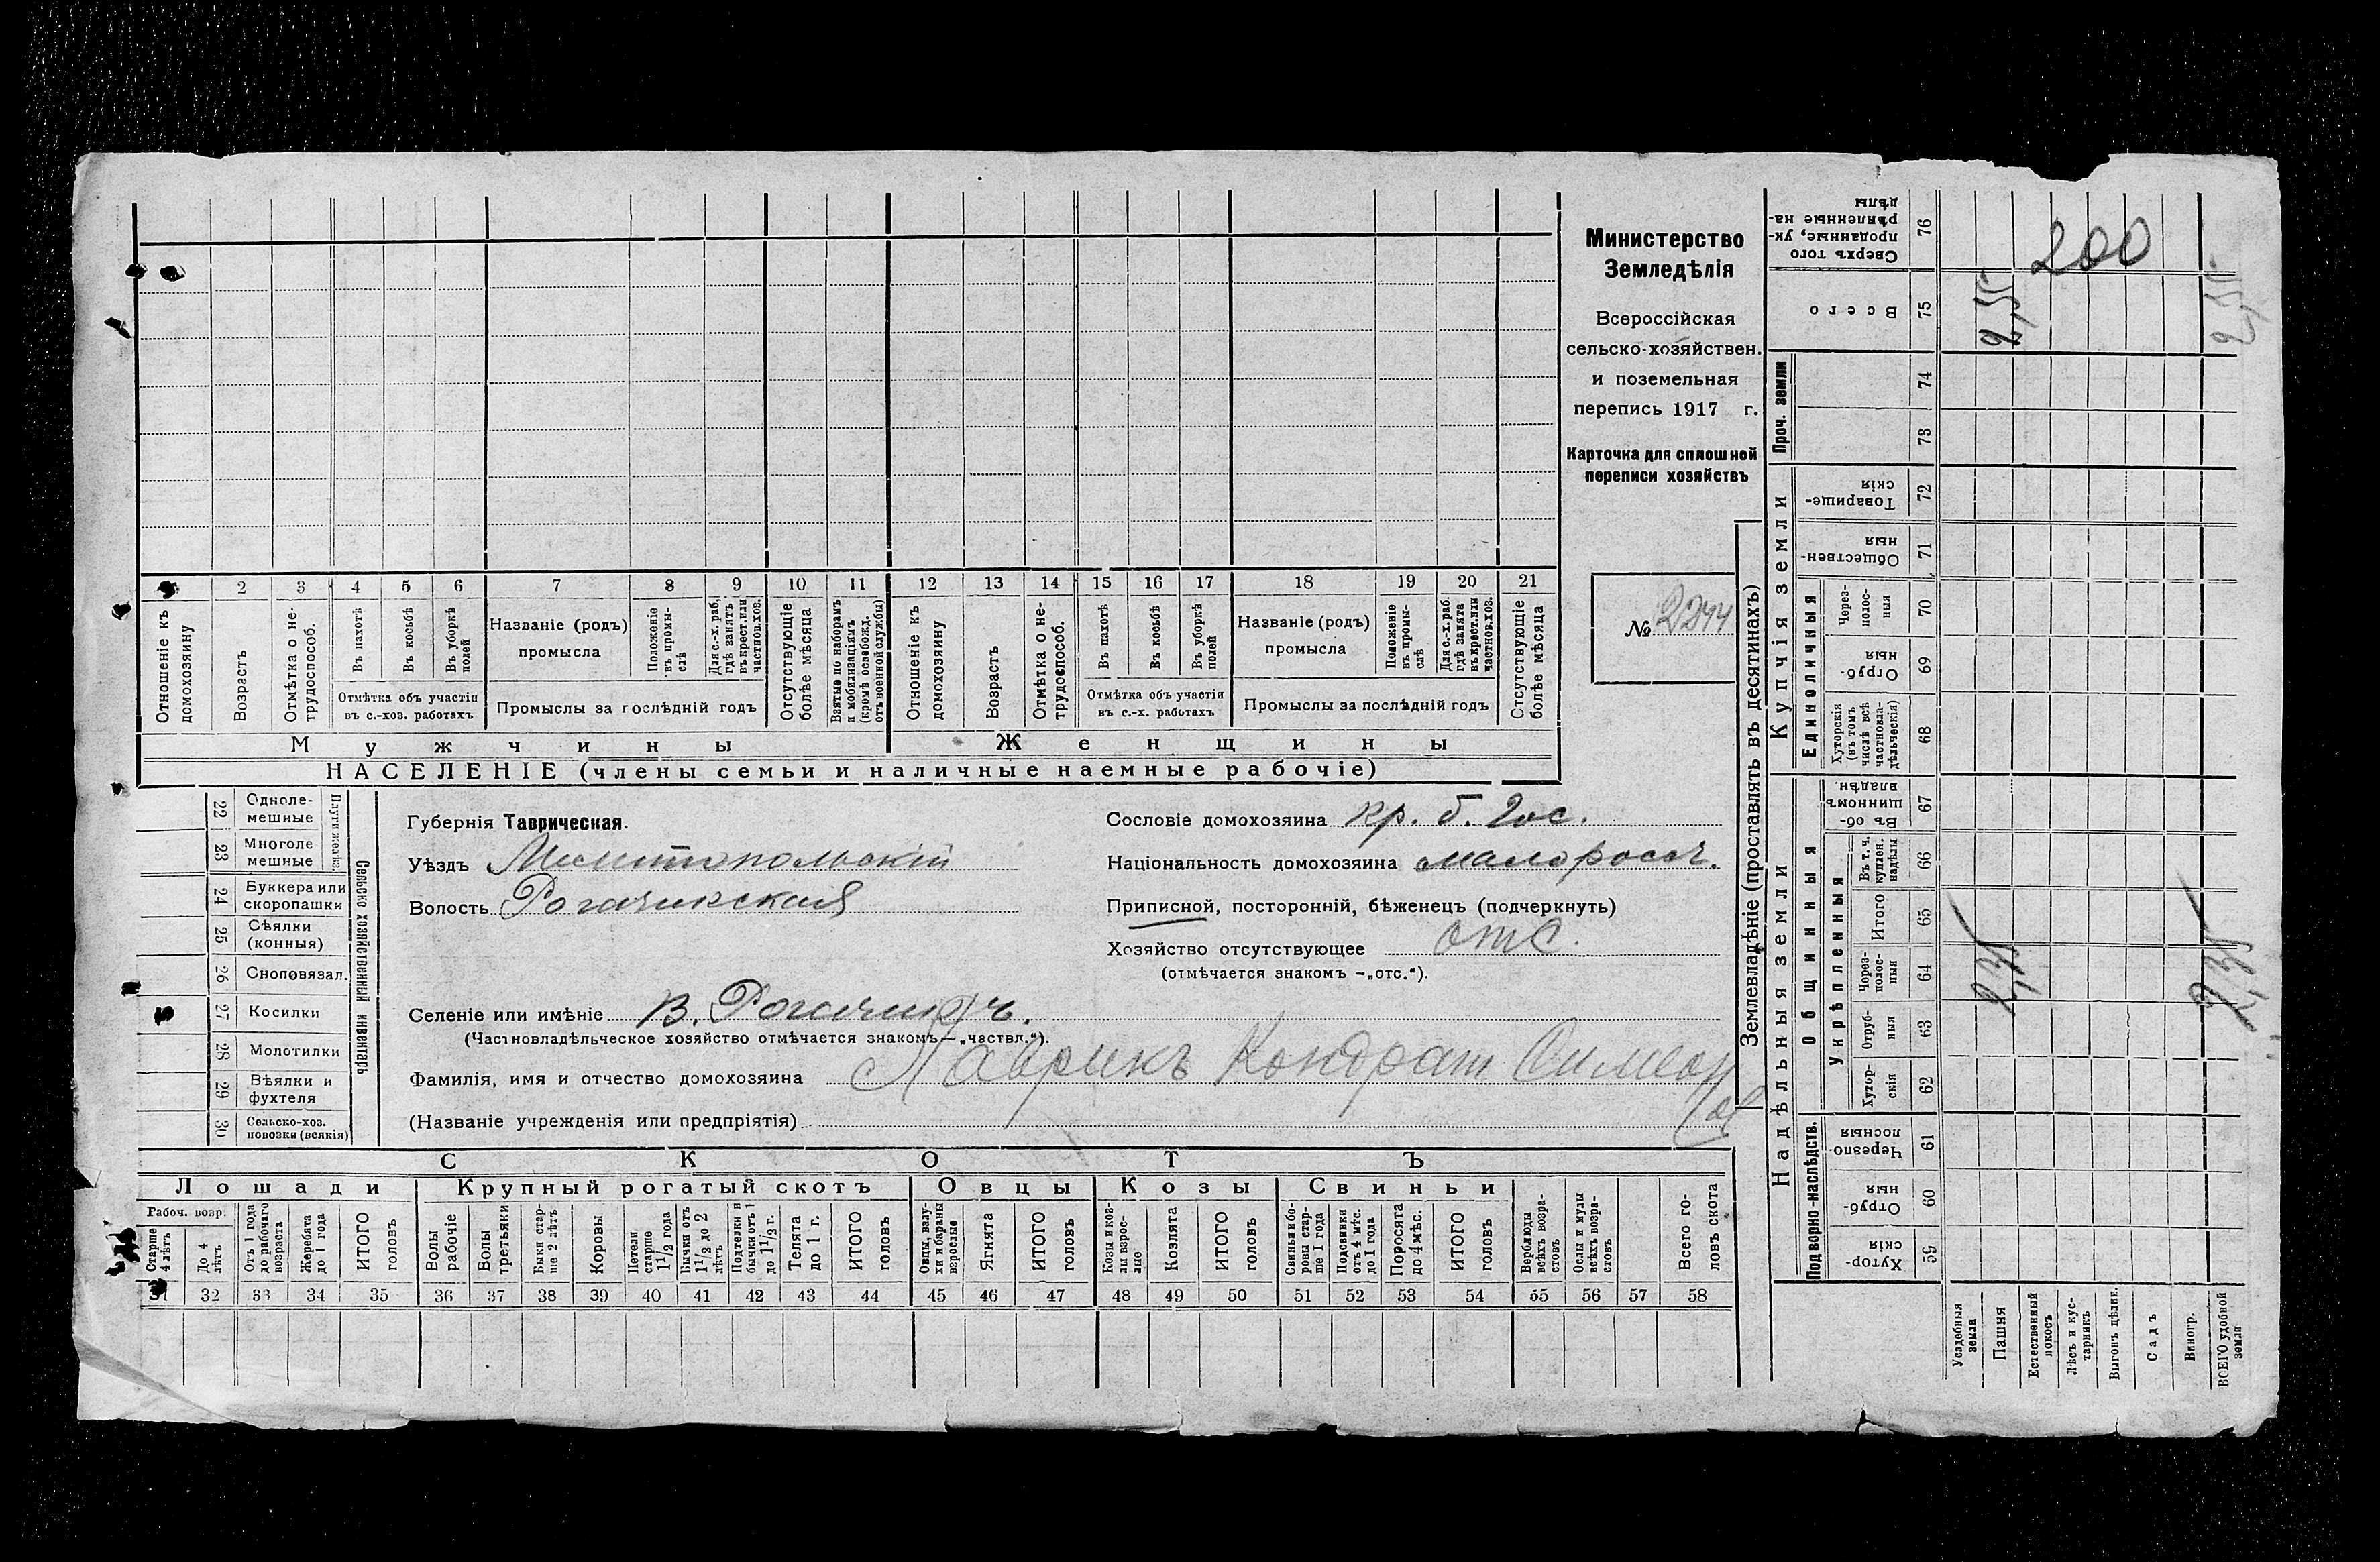 Министерство
Земледѣлія
Всероссійская
сельско-хозяйствен.
и поземельная
перепись 1917 г.
Карточка для сплошной
переписи хозяйствъ
№ 2244
1 2 3 4 5 6 7 8 9 10 11 12 13 14 15 16 17 18 19 20 21
Отношеніе къ домохозяину
Возрастъ
Отмѣтка о не-трудоспособ.
Въ пахотѣ
Въ косьбѣ
Въ уборкѣ полей
Отмѣтка объ участіи
въ с.-хоз. работахъ
Названіе (родъ)
промысла
Положеніе въ промы-слѣ
Для с.-х. раб. гдѣ занятъ въ крест. или частнов. хоз.
Промыслы за послѣдній годъ
Отсутствующіе болѣе мѣсяца
Взятые по наборамъ и мобилизаціямъ (кромѣ освобожд. отъ военной службы)
Отношеніе къ домохозяину
Возрастъ
Отмѣтка о не-трудоспособ.
Въ пахотѣ
Въ косьбѣ
Въ уборкѣ полей
Отмѣтка объ участіи
въ с.-х. работахъ
Названіе (родъ)
промысла
Положеніе въ промы-слѣ
Для с.-х. раб. гдѣ занята въ крест. или частнов. хоз.
Промыслы за послѣдній годъ
Отсутствующіе болѣе мѣсяца
Мужчины Женщины
НАСЕЛЕНІЕ (члены семьи и наличные наемные рабочіе)
22 Одноле-мешные
23 Многоле мешные
24 Буккера или скоропашки
25 Сѣялки (конныя)
26 Сноповязал.
27 Косилки
28 Молотилки
29 Вѣялки и фухтеля
30 Сельско-хоз. повозки (всякія)
Сельско хозяйственный инвентарь
Губернія Таврическая.
Уѣздъ Мелитопольскій
Волость Рогачикская
Сословіе домохозяина кр. б. Гос.
Національность домохозяина малоросс.
Приписной, посторонній, бѣженецъ (подчеркнуть)
Хозяйство отсутствующее отс.
(отмѣчается знакомъ –„отс.“).
Селеніе или имѣніе В. Рогачикъ.
(Частновладѣльческое хозяйство отмѣчается знакомъ–„частвл.“).
Фамилія, имя и отчество домохозяина Лаврикъ Кондрат Симеонов
(Названіе учрежденія или предпріятія)
СКОТЪ
Лошади Крупный рогатый скотъ Овцы Козы Свиньи
Рабоч. возр.
Старше 4 лѣтъ
До 4 лѣтъ
Отъ 1 года до рабочаго возраста
Жеребята до 1 года
ИТОГО головъ
Волы рабочіе
Волы третьяки
Быки стар-ше 2 лѣтъ
Коровы
Нетели старше 1½ года
Бычки отъ 1½ до 2 лѣтъ
Подтелки и бычки отъ 1 до 1½ г.
Телята до 1 г.
ИТОГО головъ
Овцы, валу-хи и бараны взрослые
Ягнята
ИТОГО головъ
Козы и коз-лы взрос-лые
Козлята
ИТОГО головъ
Свиньи и бо-ровы стар-ше 1 года
Подсвинки отъ 4 мѣс. до 1 года
Поросята до 4 мѣс.
ИТОГО головъ
Верблюды всѣхъ возра-стовъ
Ослы и мулы всѣхъ возра-стовъ
Всего го-ловъ скота
31 32 33 34 35 36 37 38 39 40 41 42 43 44 45 46 47 48 49 50 51 52 53 54 55 56 57 58
Землевладѣніе (проставлять въ десятинахъ)
Надѣльныя земли Купчія земли Проч. земли
Подворно-наслѣдств. Общинныя Единоличныя
Укрѣпленныя
Сверхъ того проданные, ук-рѣпленные на-дѣлы 76
Всего 75
74
73
Товарище-скія 72
Обществен-ныя 71
Через-полос-ныя 70
Отруб-ныя 69
Хуторскія (въ томъ числѣ всѣ частновла-дѣльческія) 68
Въ об-щинномъ владѣн. 67
Въ т. ч. куплен. надѣлы 66
Итого 65
Через-полос-ныя 64
Отруб-ныя 63
Хутор-скія 62
Черезпо-лосныя 61
Отруб-ныя 60
Хутор-скія 59
Усадебныя земли
Пашня
Естественный покосъ
Лѣсъ и кус-тарникъ
Выгонъ цѣлик.
Садъ
Виногр.
ВСЕГО удобной земли
200